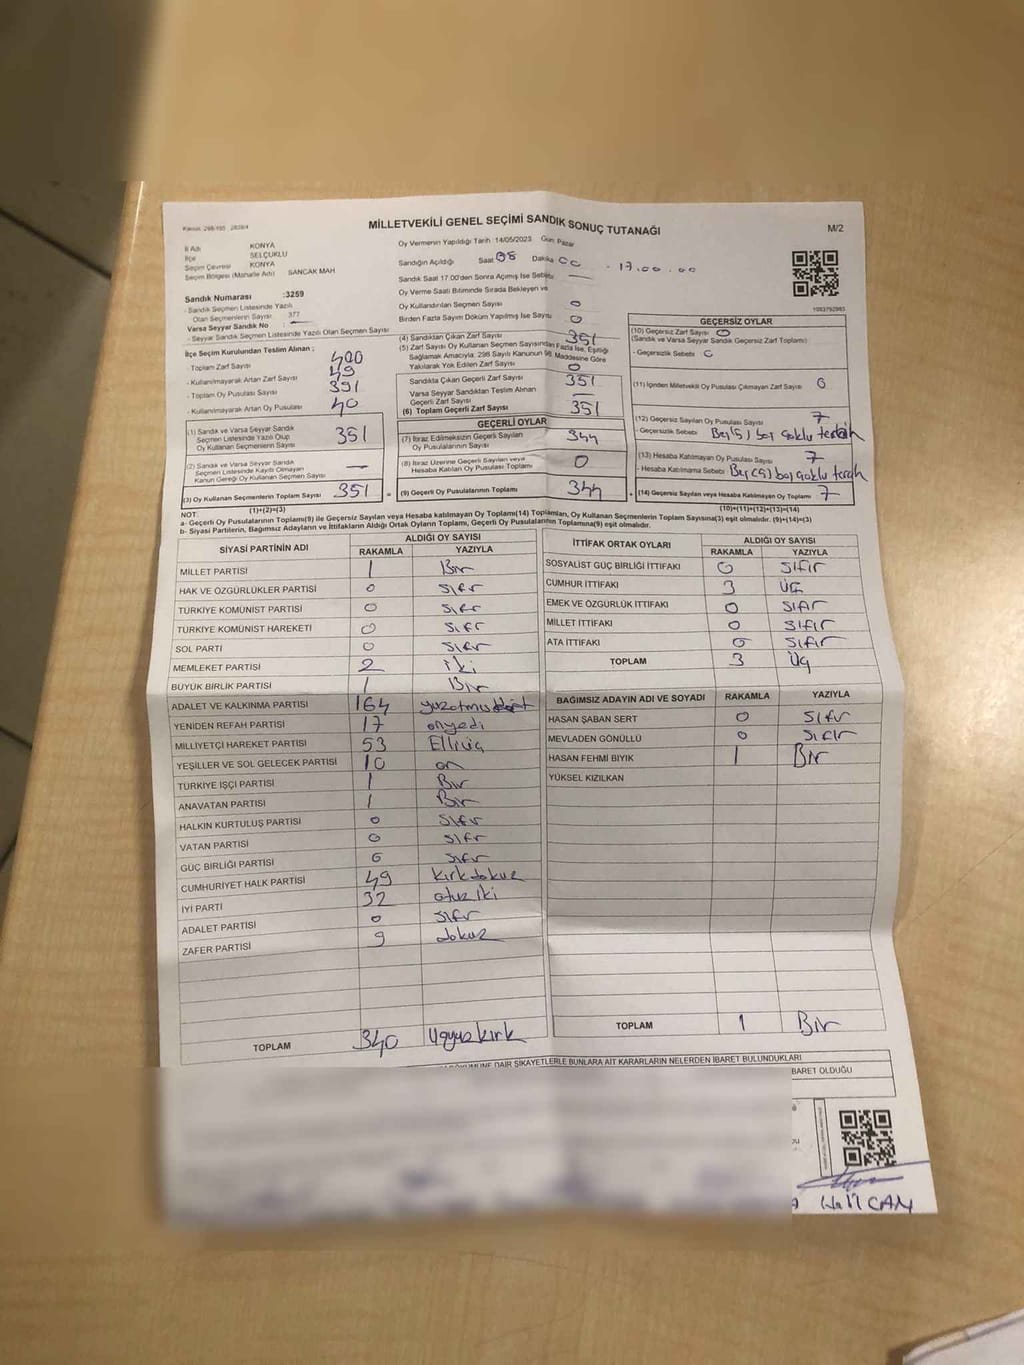 Kanun: 298/105 2839/4
MİLLETVEKİLİ GENEL SEÇİMİ SANDIK SONUÇ TUTANAĞI
M/2
İl Adı KONYA
İlçe SELÇUKLU
Seçim Çevresi KONYA
Seçim Bölgesi (Mahalle Adı) SANCAK MAH
Sandık Numarası :3259
- Sandık Seçmen Listesinde Yazılı
Olan Seçmenlerin Sayısı 377
Varsa Seyyar Sandık No :
- Seyyar Sandık Seçmen Listesinde Yazılı Olan Seçmen Sayısı
Oy Vermenin Yapıldığı Tarih :14/05/2023 Gün: Pazar
Sandığın Açıldığı Saat 08 Dakika 00 - 17.00.00
Sandık Saat 17.00'den Sonra Açımış İse Sebebi
Oy Verme Saati Bitiminde Sırada Bekleyen ve
Oy Kullandırılan Seçmen Sayısı 0
Birden Fazla Sayım Döküm Yapılmış İse Sayısı 0
1083792983
İlçe Seçim Kurulundan Teslim Alınan :
- Toplam Zarf Sayısı 400
- Kullanılmayarak Artan Zarf Sayısı 49
- Toplam Oy Pusulası Sayısı 391
- Kullanılmayarak Artan Oy Pusulası 40
(1) Sandık ve Varsa Seyyar Sandık
Seçmen Listesinde Yazılı Olup
Oy Kullanan Seçmenlerin Sayısı 351
(2) Sandık ve Varsa Seyyar Sandık
Seçmen Listesinde Kayıtlı Olmayan
Kanun Gereği Oy Kullanan Seçmen Sayısı —
(3) Oy Kullanan Seçmenlerin Toplam Sayısı 351
(1)+(2)=(3)
(4) Sandıktan Çıkan Zarf Sayısı 351
(5) Zarf Sayısı Oy Kullanan Seçmen Sayısından Fazla İse, Eşitliği
Sağlamak Amacıyla, 298 Sayılı Kanunun 98. Maddesine Göre
Yakılarak Yok Edilen Zarf Sayısı 0
Sandıkta Çıkan Geçerli Zarf Sayısı 351
Varsa Seyyar Sandıktan Teslim Alınan
Geçerli Zarf Sayısı —
(6) Toplam Geçerli Zarf Sayısı 351
GEÇERLİ OYLAR
(7) İtiraz Edilmeksizin Geçerli Sayılan
Oy Pusulalarının Sayısı 344
(8) İtiraz Üzerine Geçerli Sayılan veya
Hesaba Katılan Oy Pusulası Toplamı 0
= (9) Geçerli Oy Pusulalarının Toplamı 344
GEÇERSİZ OYLAR
(10) Geçersiz Zarf Sayısı 0
(Sandık ve Varsa Seyyar Sandık Geçersiz Zarf Toplamı)
- Geçersizlik Sebebi 0
(11) İçinden Milletvekili Oy Pusulası Çıkmayan Zarf Sayısı 0
(12) Geçersiz Sayılan Oy Pusulası Sayısı 7
- Geçersizlik Sebebi Beş(5) boş çoklu tercih
(13) Hesaba Katılmayan Oy Pusulası Sayısı 7
- Hesaba Katılmama Sebebi Beş(5) boş çoklu tercih
+ (14) Geçersiz Sayılan veya Hesaba Katılmayan Oy Toplamı 7
(10)+(11)+(12)+(13)=(14)
NOT:
a- Geçerli Oy Pusulalarının Toplamı(9) ile Geçersiz Sayılan veya Hesaba Katılmayan Oy Toplamı(14) Toplamları, Oy Kullanan Seçmenlerin Toplam Sayısına(3) eşit olmalıdır. (9)+(14)=(3)
b- Siyasi Partilerin, Bağımsız Adayların ve İttifakların Aldığı Ortak Oyların Toplamı, Geçerli Oy Pusulalarının Toplamına(9) eşit olmalıdır.
SİYASİ PARTİNİN ADI ALDIĞI OY SAYISI
RAKAMLA YAZIYLA
MİLLET PARTİSI 1 Bir
HAK VE ÖZGÜRLÜKLER PARTİSI 0 sıfır
TÜRKİYE KOMÜNİST PARTİSI 0 sıfır
TÜRKİYE KOMÜNİST HAREKETİ 0 sıfır
SOL PARTİ 0 sıfır
MEMLEKET PARTİSI 2 iki
BÜYÜK BİRLİK PARTİSI 1 Bir
ADALET VE KALKINMA PARTİSI 164 yüzatmışdört
YENİDEN REFAH PARTİSI 17 onyedi
MİLLİYETÇİ HAREKET PARTİSI 53 Elliüç
YEŞİLLER VE SOL GELECEK PARTİSI 10 on
TÜRKİYE İŞÇİ PARTİSI 1 Bir
ANAVATAN PARTİSI 1 Bir
HALKIN KURTULUŞ PARTİSI 0 sıfır
VATAN PARTİSI 0 sıfır
GÜÇ BİRLİĞİ PARTİSI 0 sıfır
CUMHURİYET HALK PARTİSI 49 kırkdokuz
İYİ PARTİ 32 otuziki
ADALET PARTİSI 0 sıfır
ZAFER PARTİSI 9 dokuz
TOPLAM 340 Üçyüzkırk
İTTİFAK ORTAK OYLARI ALDIĞI OY SAYISI
RAKAMLA YAZIYLA
SOSYALİST GÜÇ BİRLİĞİ İTTİFAKI 0 sıfır
CUMHUR İTTİFAKI 3 Üç
EMEK VE ÖZGÜRLÜK İTTİFAKI 0 sıfır
MİLLET İTTİFAKI 0 sıfır
ATA İTTİFAKI 0 sıfır
TOPLAM 3 Üç
BAĞIMSIZ ADAYIN ADI VE SOYADI RAKAMLA YAZIYLA
HASAN ŞABAN SERT 0 sıfır
MEVLADEN GÖNÜLLÜ 0 sıfır
HASAN FEHMİ BIYIK 1 Bir
YÜKSEL KIZILKAN
TOPLAM 1 Bir
DAİR ŞİKAYETLERLE BUNLARA AİT KARARLARIN NELERDEN İBARET BULUNDUKLARI
BARET OLDUĞU
Halil CAN